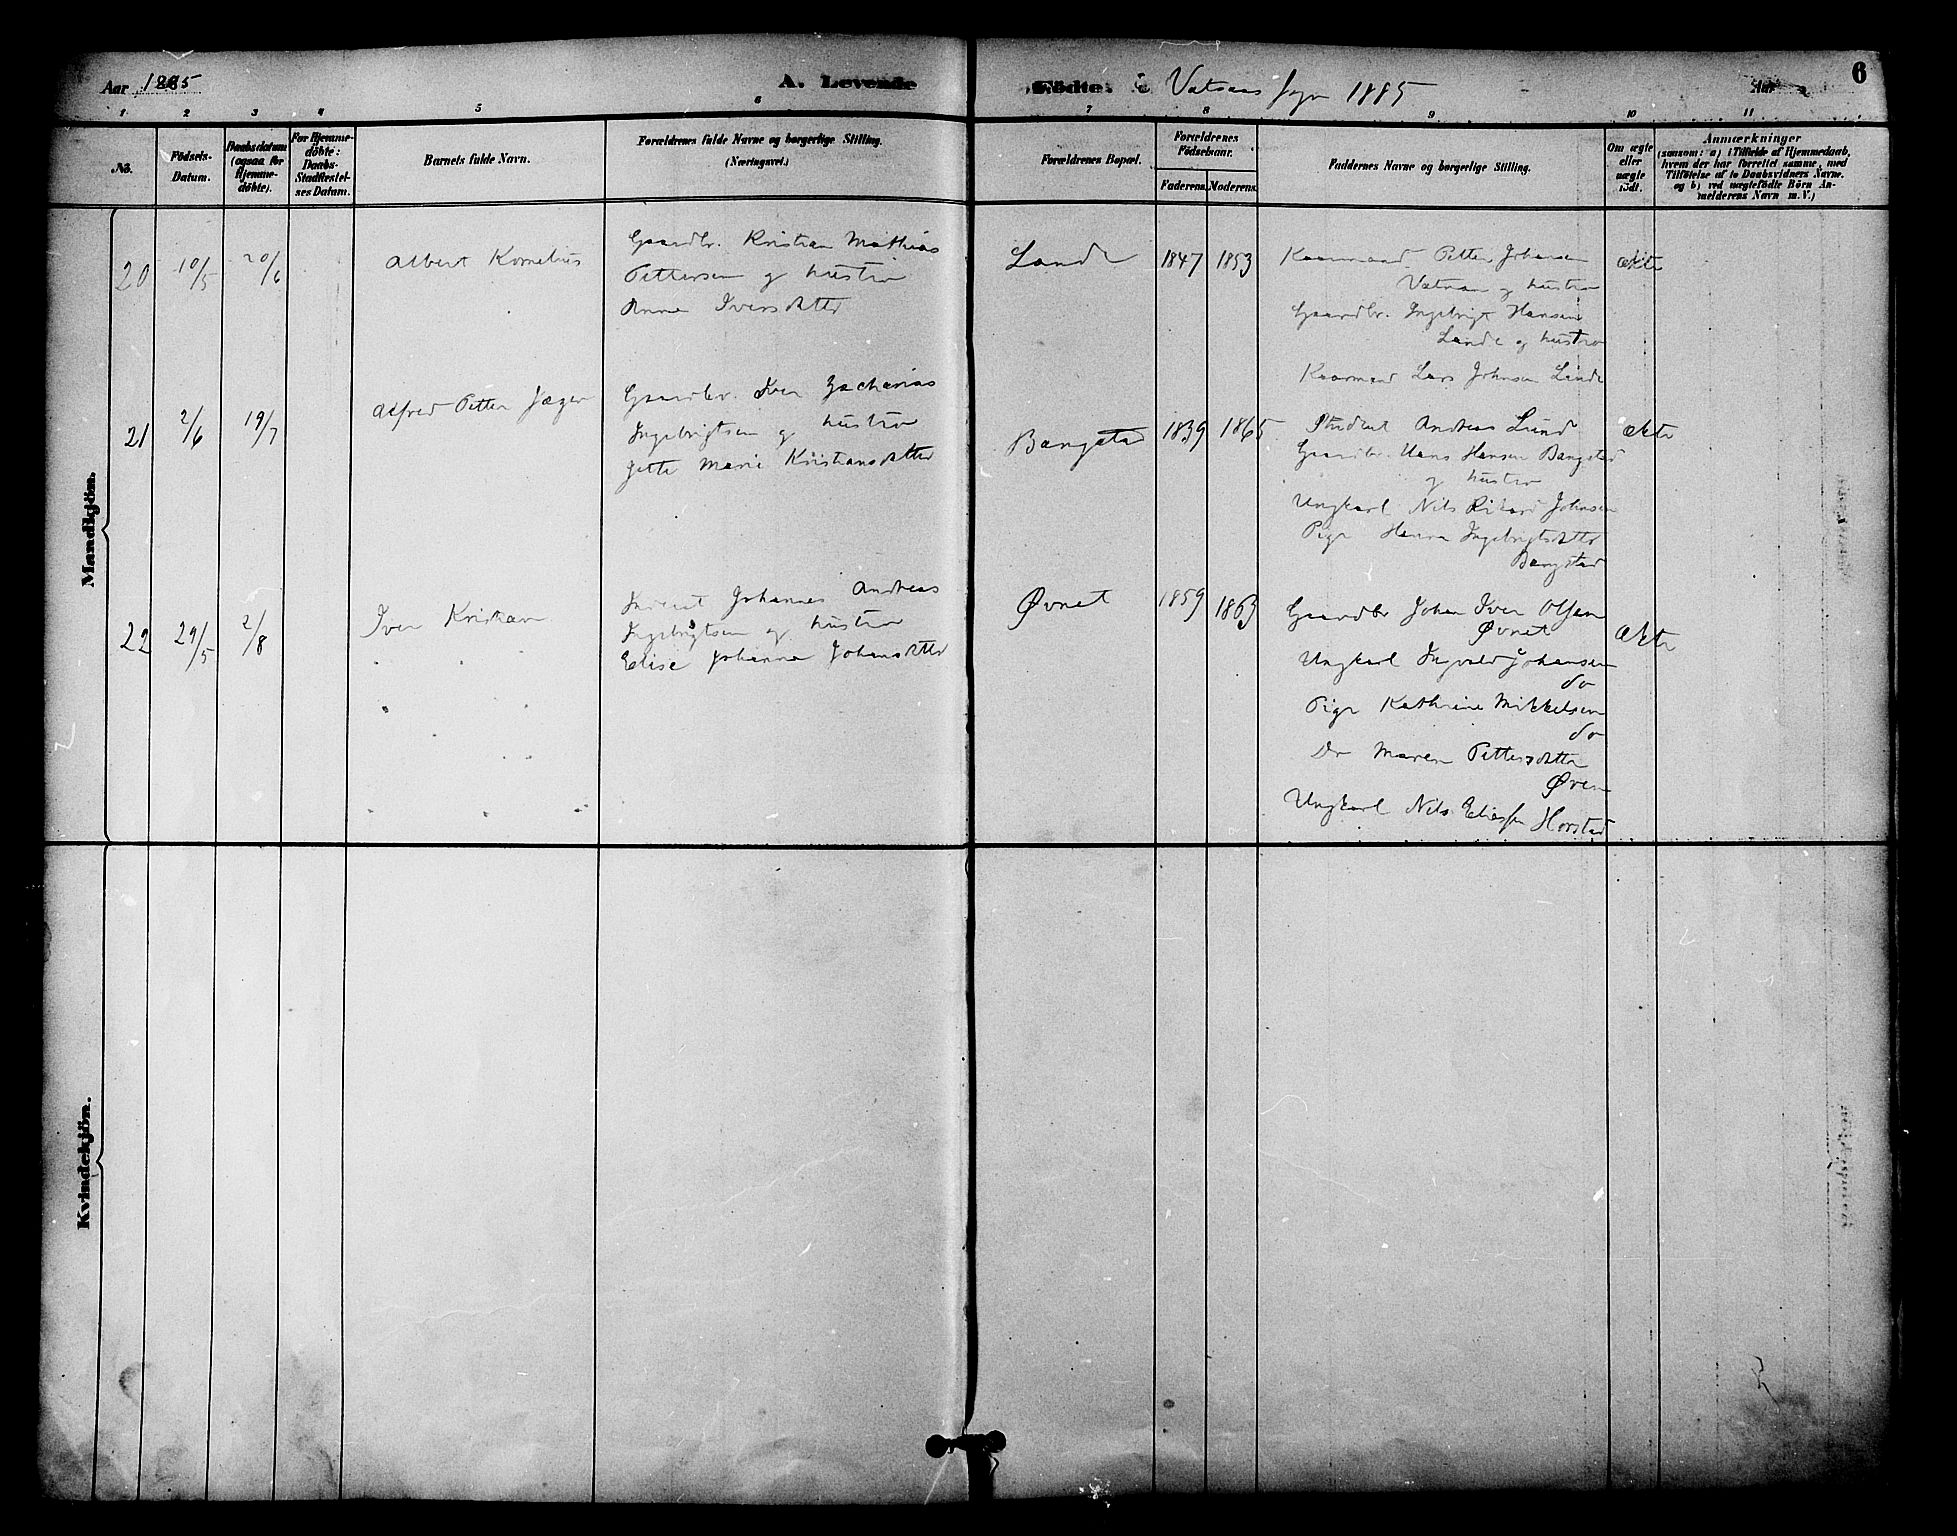 Aar 1885
A. Levende
Födte. i Vatnaas sogn 1885
Aar
6
1 2 3 4 5 6 7 8 9 10 11
No.
Födsels-
Datum.
Daabsdatum
(ogsaa for
Hjemme-
döbte).
For Hjemme-
döbte:
Daabs-
Stadfæstel-
ses Datum.
Barnets fulde Navn.
Forældrenes fulde Navne og borgerlige Stilling.
(Næringsvei.)
Forældrenes Bopæl.
Forældrenes
Födselsaar.
Faderens. Moderens.
Faddernes Navne og borgerlige Stilling.
Om ægte
eller
uægte
födt.
Anmærkninger
(saasom: a) i Tilfælde af Hjemmedaab,
hvem der har forrettet samme, med
Tilföielse af to Daabsvidners Navne.
og b) ved uægtefödte Börn An-
melderens Navn m.V.)
Mandkjön.
20 10/5 20/6 Albert Kornelius
Gaardbr. Kristian Mathias
Pettersen og hustro
Anna Iversdatter
Lande 1847 1853
Kaarmand Petter Johansen
Vatnan og hustro
Gaardbr. Ingebrigt Hansen
Lande og hustro
Kaarmand Lars Johnsen Lande
ækte
21 2/6 19/7 Alfred Petter Jæger
Gaardbr. Iver Zacharias
Ingebrigtsen og hustro
Jette Marie Kristiansdatter
Bangstad 1839 1865
Student Andreas Lund
Gaardbr. Hans Hansen Bangstad
og hustro
Ungkarl Nils Rikard Johnsen
Pige Hanna Ingebrigtsdatter
Bangstad
ækte
22 29/5 2/8 Iver Kristian
Inderst Johannes Andreas
Ingebrigtsen og hustro
Elise Johanna Johansdatter
Øvnet 1859 1863
Gaardbr Johan Iver Olsen
Øvnet
Ungkarl Ingvald Johansen
do
Pige Kathrine Mikkelsen
do
Do Maren Pettersdatter
Øvn
Ungkarl Nils Eliassen Horstad
ækte
Kvindekjön.